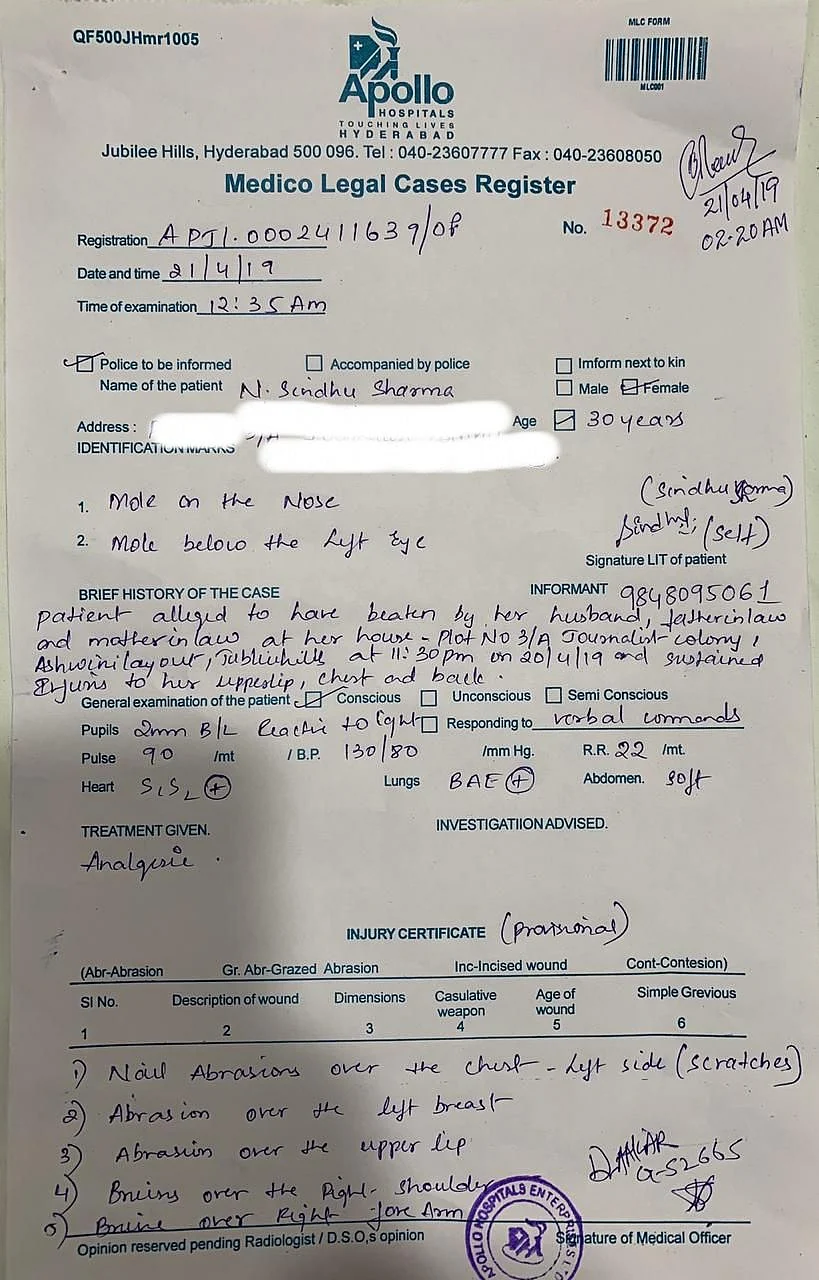 QF500JHmr1005
MLC FORM
MLC001
Apollo
HOSPITALS
TOUCHING LIVES
HYDERABAD
Jubilee Hills, Hyderabad 500 096. Tel : 040-23607777 Fax : 040-23608050
Medico Legal Cases Register
21/04/19
02-20AM
No. 13372
Registration APJ1.0002411639/OP
Date and time 21/4/19
Time of examination 12:35 Am
Police to be informed Accompanied by police Imform next to kin
Name of the patient N. Sindhu Sharma Male Female
Address : Age 30 years
IDENTIFICATION MARKS
1. Mole on the Nose
2. Mole below the Left Eye
(Sindhu Sharma)
(self)
Signature LIT of patient
BRIEF HISTORY OF THE CASE INFORMANT 9848095061
patient alleged to have beaten by her husband, fatherinlaw
and motherinlaw at her house - Plot No 3/A Journalist colony,
Ashwini layout, Jubliehills at 11:30pm on 20/4/19 and sustained
Injuris to her upperlip, chest and back.
General examination of the patient Conscious Unconscious Semi Conscious
Pupils 2mm B/L Reactive to light Responding to verbal commands
Pulse 90 /mt / B.P. 130/80 /mm Hg. R.R. 22 /mt.
Heart S1S2 + Lungs BAE + Abdomen. soft
TREATMENT GIVEN. INVESTIGATIION ADVISED.
Analgesic.
INJURY CERTIFICATE (provisional)
(Abr-Abrasion Gr. Abr-Grazed Abrasion Inc-Incised wound Cont-Contesion)
SI No. Description of wound Dimensions Casulative weapon Age of wound Simple Grevious
1 2 3 4 5 6
1) Nail Abrasions over the chest - left side (scratches)
2) Abrasion over the left breast
3) Abrasion over the upper lip
4) Bruins over the Right shoulder
5) Bruine over Right fore Arm
Opinion reserved pending Radiologist / D.S.O,s opinion
Signature of Medical Officer
APOLLO HOSPITALS ENTERPRISES LTD